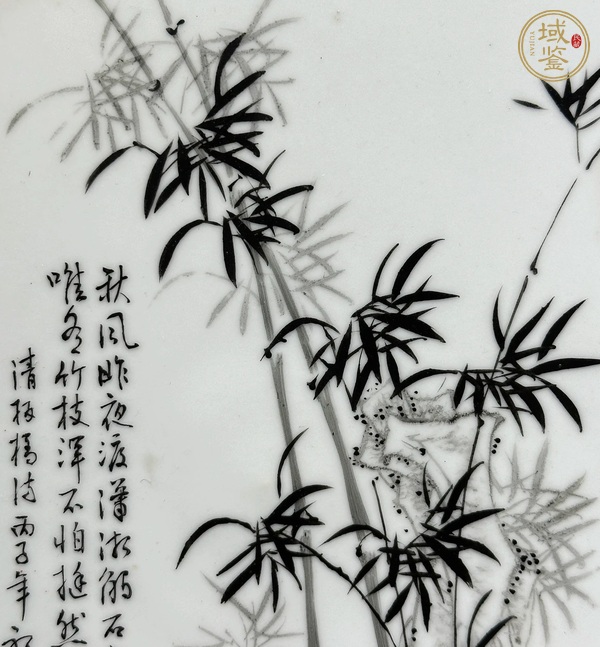 秋风昨夜渡潇湘觸石
唯有竹枝浑不怕挺然
清板橋诗丙子年
域鉴
YUJIAN